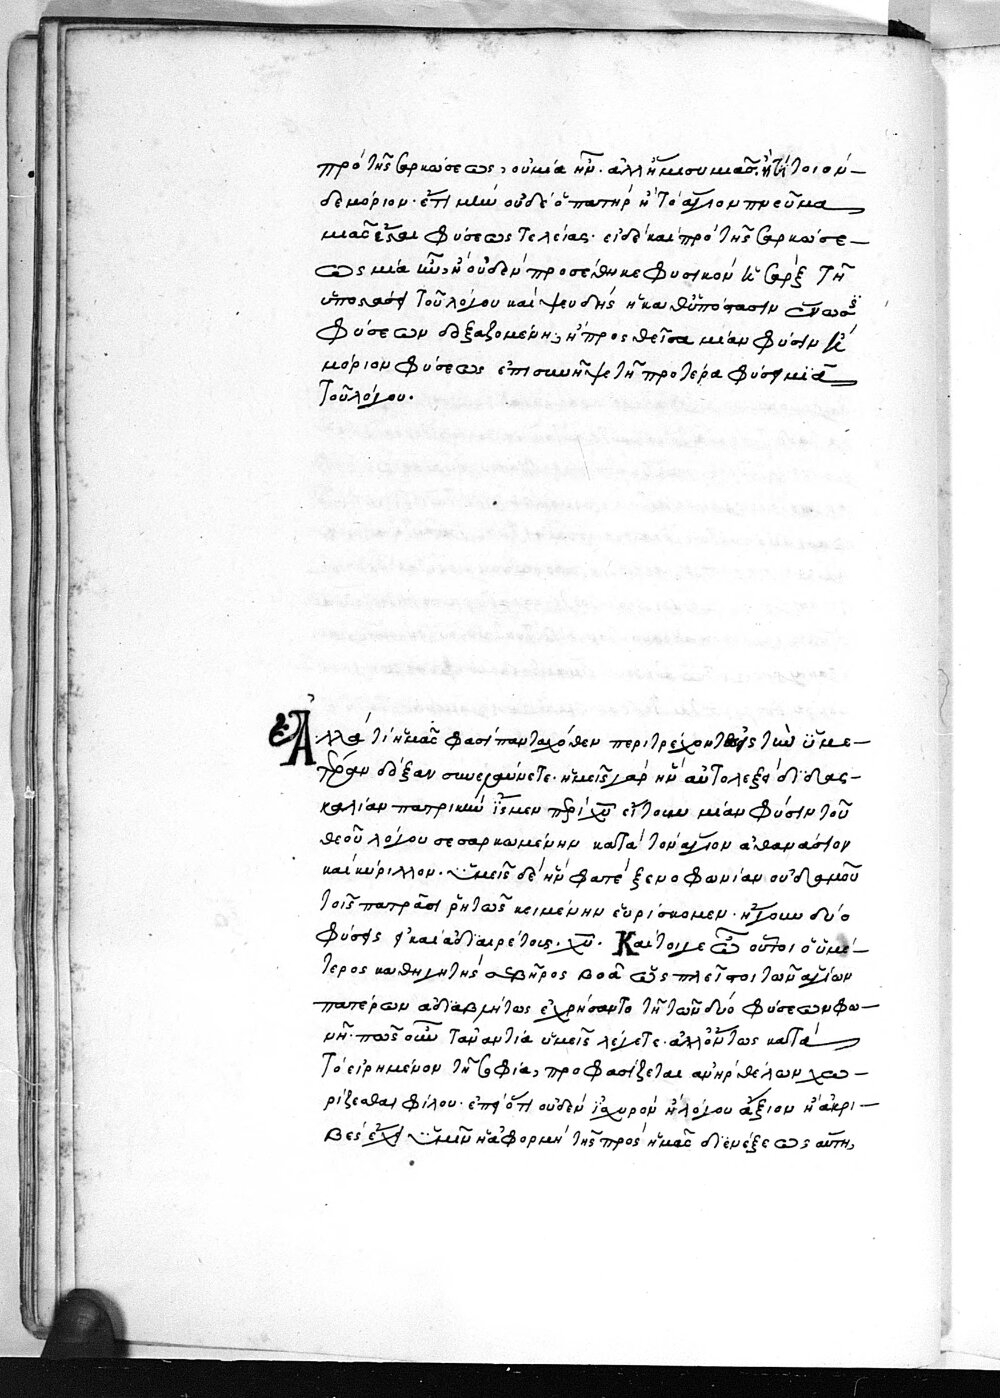 πρὸ τῆς σαρκώσεως, οὐ μία ἦν· ἀλλ' ἥμισυ μιᾶς, ἤ τι τοιόν–
δε μόριον· ἔτι μὴν οὐδὲ ὁ πατὴρ ἢ τὸ ἅγιον πνεῦμα
μιᾶς ἔσται φύσεως τελείας· εἰ δὲ καὶ πρὸ τῆς σαρκώσε–
ως μία ἦν, ἢ οὐδὲν προσέθηκε φυσικὸν ἡ σὰρξ τῆ
ὑποστάσει τοῦ λόγου καὶ ψευδὴς ἡ καθ' ὑπόστασιν ἕνωσις
φύσεων δοξαζομένη, ἢ προσθεῖσα μίαν φύσιν ἢ
μόριον φύσεως ἐπισυνῆψε τῆ προτέρα φύσει μιᾶ
τοῦ λόγου.
Ἀλλὰ τί ἡμᾶς φασὶ πανταχόθεν περιτρέχοντες εἰς τὴν ὑμε–
τέραν δόξαν συνελαύνετε· ἡμεῖς γὰρ ἣν αὐτολεξεὶ διδας–
καλίαν πατρικὴν ἴσμεν περὶ χυ εἴτουν μίαν φύσιν τοῦ
θεοῦ λόγου σεσαρκωμένην κατὰ τὸν ἅγιον ἀθανάσιον
καὶ κύριλλον· ὑμεῖς δὲ ἣν φατὲ ξενοφωνίαν οὐδαμοῦ
τοῖς πατράσι ῥητῶς κειμένην εὑρίσκομεν· ἤγουν δύο
φύσεις καὶ ἀδιαιρέτοις χυ. Καίτοιγε ὦ οὗτοι ὁ ὑμέ–
τερος καθηγητὴς σεβῆρος βοᾶ ὡς πλεῖστοι τῶν ἁγίων
πατέρων ἀδιαβλήτως ἐχρήσαντο τῆ τῶν δύο φύσεων φω–
νῆ· πῶς οὖν τἀναντία ὑμεῖς λέγετε· ἀλλ' ὄντως κατὰ
τὸ εἰρημένον τῆ σοφία, προφασίζεται ἀνὴρ θέλων χω–
ρίζεσθαι φίλου· ἐπεὶ ὅτι οὐδὲν ἰσχυρὸν ἢ λόγου ἄξιον ἢ ἀκρι–
βὲς ἔχει ὑμῖν ἡ ἀφορμὴ τῆς πρὸς ἡμᾶς διενέξεως αὕτη,